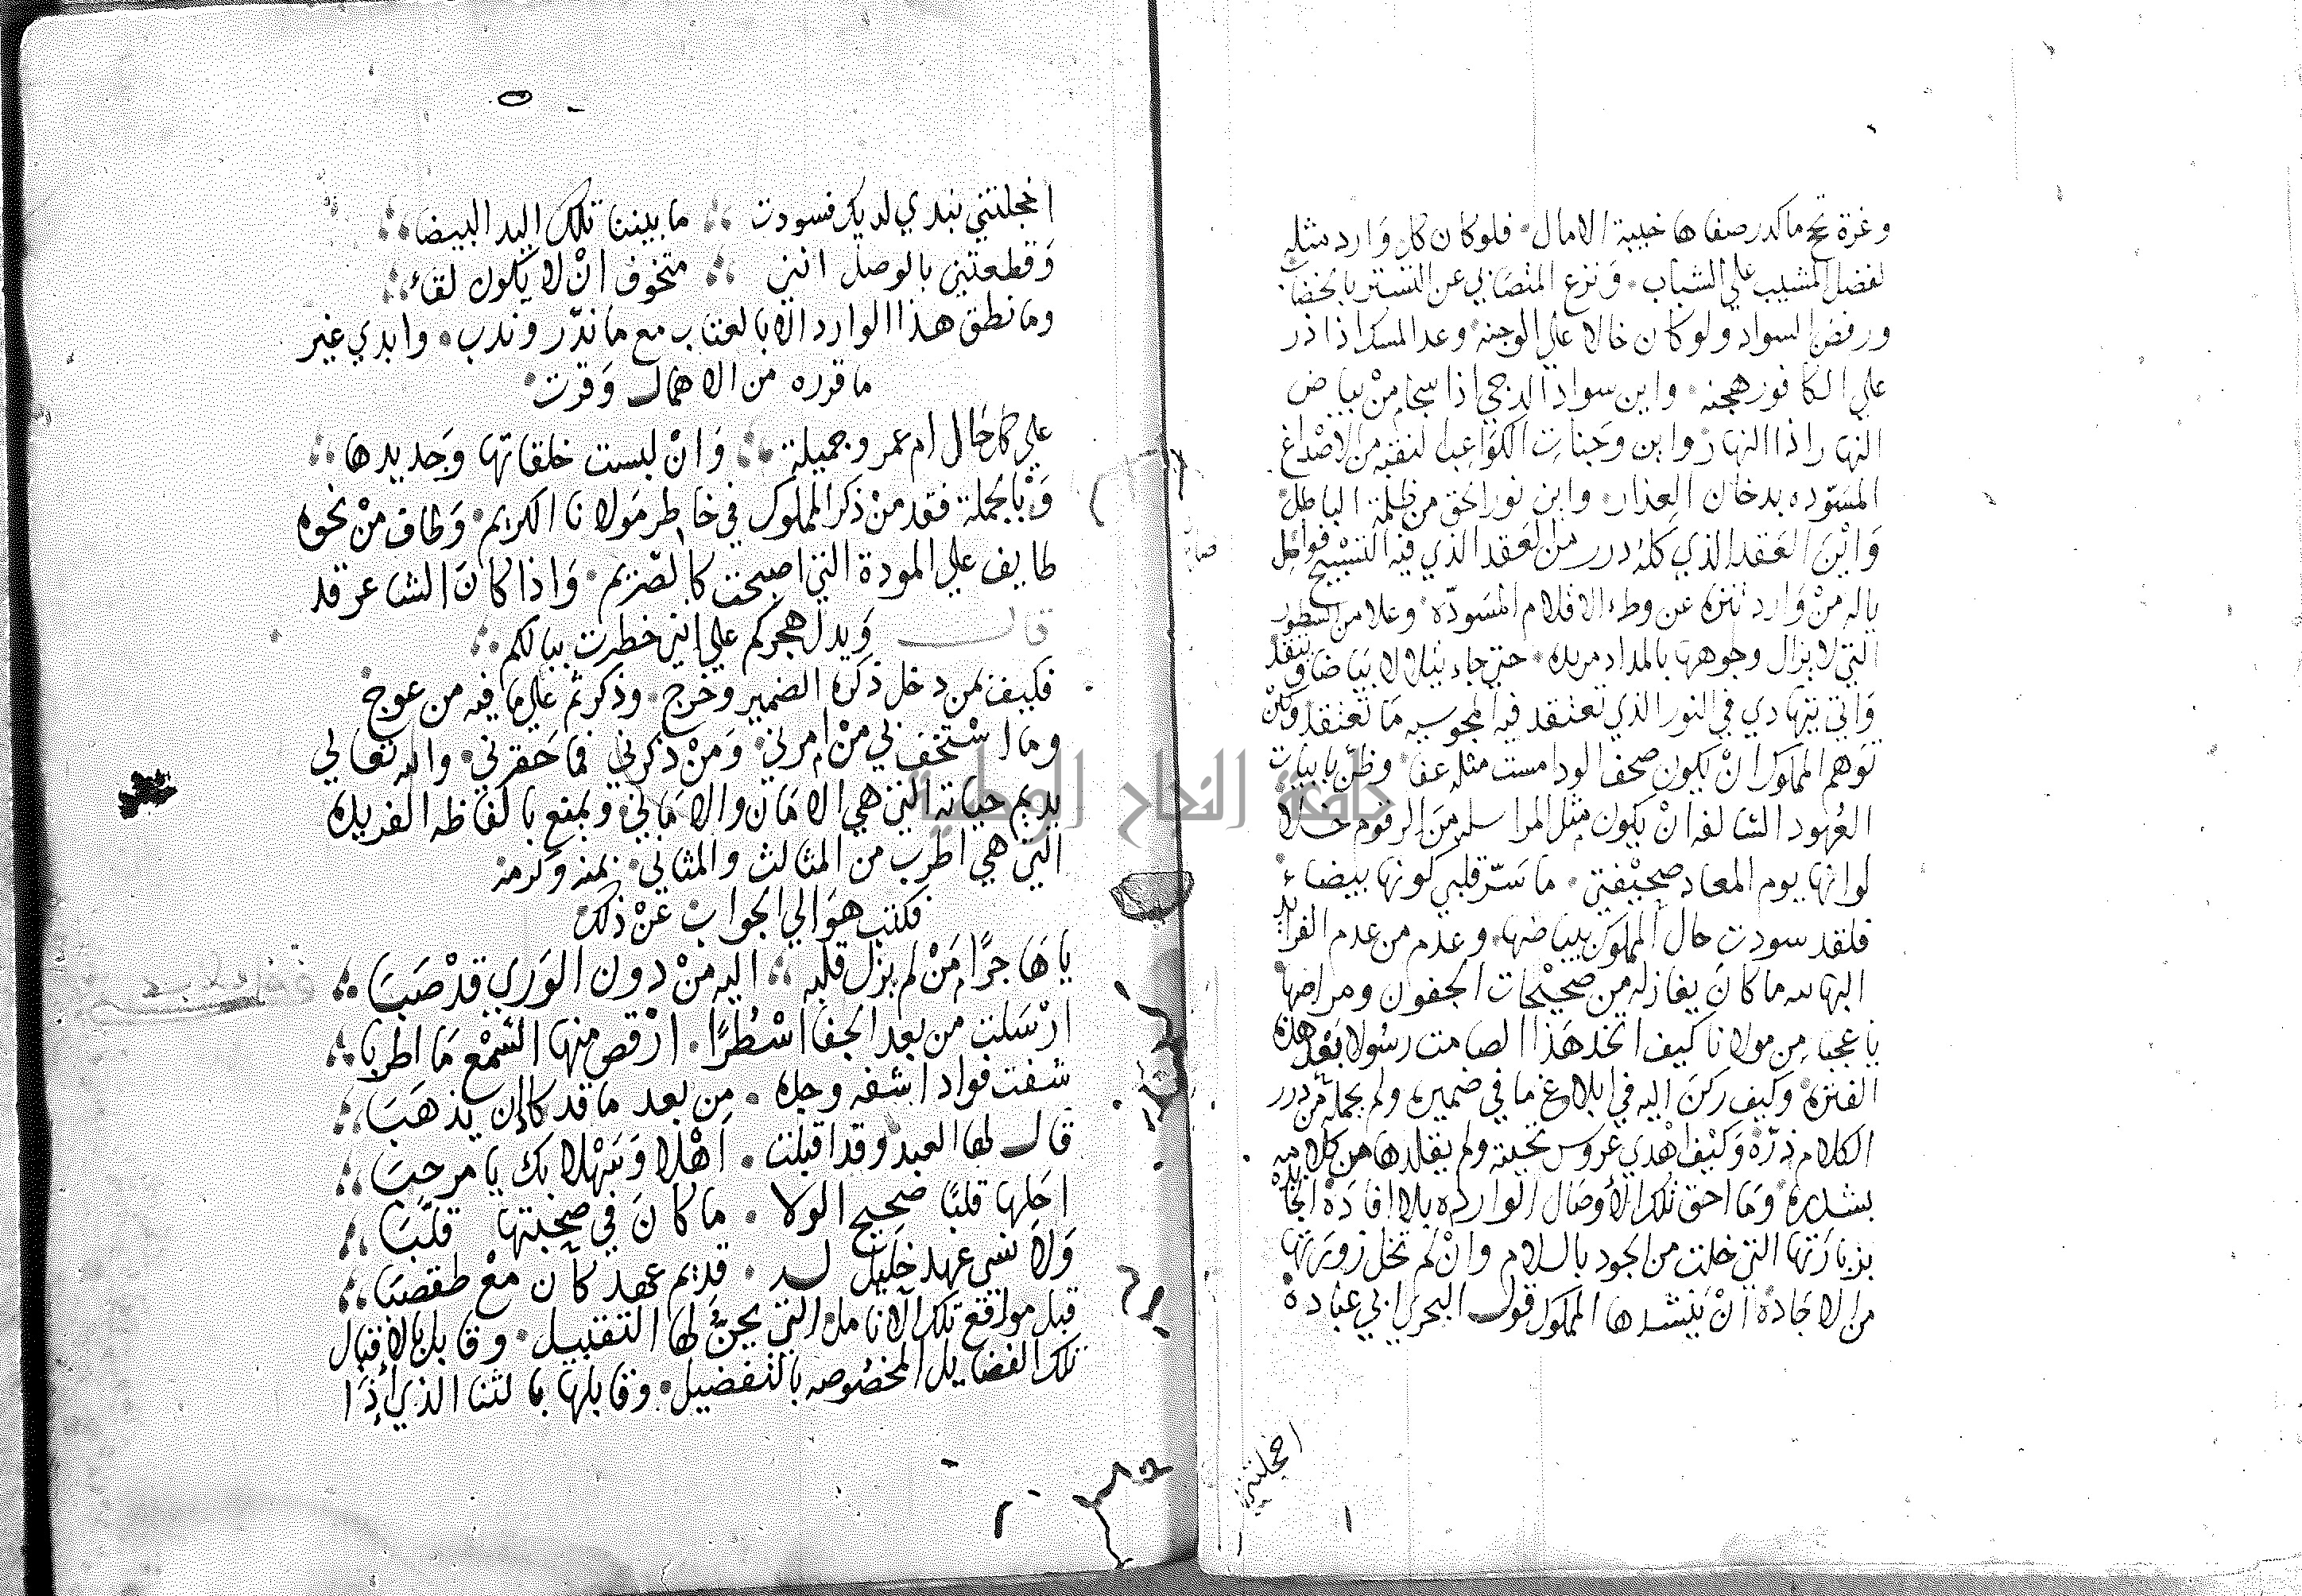 وغرة تمح ما كدر صفاها خيبة الامال فلو كان كل وارد مثله
لفضل المشيب علي الشباب ونزع المتصابي عن التستر بالخضاب
ورفض السواد ولو كان خالا علي الوجنه وعد المسك اذا ذر
علي الكافور هجنه واين سواد الدجي اذا سجا من بياض
النهار اذا انهار واين وجنات الكواعب النقيه من الاصداغ
المسوده بدخان العذار واين نور الحق من ظلمة الباطل
واين العقد الذي كله درر من العقد الذي فيه التسبيح فواصل
ياله من وارد تنزه عن وطء الاقلام المسوده وعلا من السطور
التي لا يزال وجوهها بالمداد مربده حتي جاء يتلالا بياضا ويتقد
واتي يتهادي في النور الذي تعتقد فيه المجوسيه ما تعتقد ولكن
توهم المملوك ان يكون صحف الود امست مثله عفا وظن بابيات
العهود السالفه ان يكون مثل المراسله من الرقوم خلا
لو انها يوم المعاد صحيفتي ما سر قلبي كونها بيضاء
فلقد سودت حال المملوك ببياضها وعدم من عدم الفوائد
البهائيه ما كان يغازله من صحيحات الجفون ومراضها
يا عجباه من مولانا كيف اتخذ هذا الصامت رسولا بعد هذه
الفتره وكيف ركن اليه في ابلاغ ما في ضميره ولم يحمله من درر
الكلام ذره وكيف اهدي عروس تحيته ولم يقلدها من كلامه
بشذره وما احق تلك الاوصال الوارده بلا افاده الجائده
بزيارتها التي خلت من الجود بالسلام وان لم تخل زورتها
من الاجاده ان ينشدها المملوك قول البحتري ابي عباده
اخجلتني
اخجلتني بندي يديك فسودت ما بيننا تلك اليد البيضاء
وقطعتني بالوصل انني متخوف ان لا يكون لقاء
وما نطق هذا الوارد الا بالعتاب مع ما ندر وندب وابدي غير
ما قرره من الاهمال وقرت
علي كل حال ام عمرو جميلة وان لبست خلقاتها وجديدها
وبالجملة فقد من ذكر المملوك في خاطر مولانا الكريم وطاف من نحوه
طايف علي المودة التي اصبحت كالصريم واذا كان الشاعر قد
قال ويدل هجركم علي اني خطرت ببالكم
فكيف بمن دخل ذكره الضمير وخرج وذكر ثم علي ما فيه من عوج
وما استخف بي من امرني ومن ذكرني فما حقرني والله تعالي
يديم حياته التي هي الامان والاماني ويمتع بالفاظه الفريده
التي هي اطرب من المثالث والمثاني بمنه وكرمه
فكتب هو الي الجواب عن ذلك
يا هاجرا من لم يزل قلبه اليه من دون الوري قد صبا
ارسلت من بعد الجفا اسطرا ارقص منها السمع ما اطربا
شفت فوادا شفه وجده من بعد ما قد كان ان يذهبا
قال لها العبد وقد اقبلت اهلا وسهلا بك يا مرحبا
احلها قلبا صحيح الولا ما كان في صحبتها قلبا
ولا نسي عهد خليل له قديم عهد كان مع طقصبا
قبل مواقع تلك الانامل التي يحق لها التقبيل وقابل بالاقبال
تلك الفضايل المخصوصه بالتفضيل وقابلها بالثنا الذي اذا